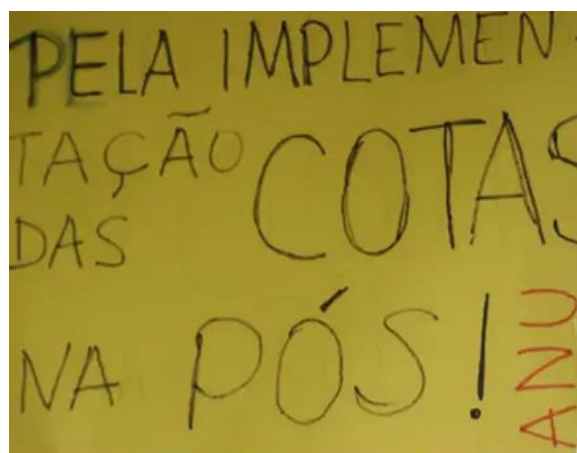 PELA IMPLEMEN-
TAÇÃO
DAS COTAS
NA PÓS!
ANU